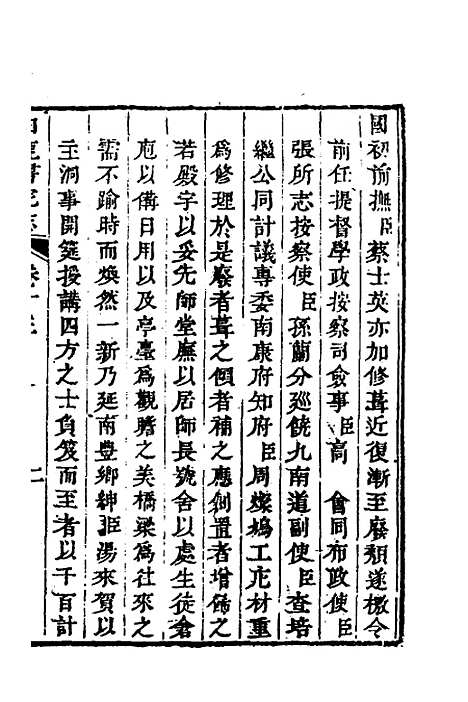 國初前撫臣蔡士英亦加修葺近復漸至廢頹遂檄令
前任提督學政按察司僉事臣高 會同布政使臣
張所志按察使臣孫蘭分廵饒九南道副使臣查培
繼公同計議專委南康府知府臣周燦鳩工庀材重
為修理於是廢者葺之傾者補之應創置者增飾之
若殿宇以妥先師堂廡以居師長號舍以處生徒倉
庖以備日用以及亭臺為觀瞻之美橋梁為往來之
需不踰時而煥然一新乃延南豊鄉紳臣湯來賀以
主洞事開筵授講四方之士負笈而至者以千百計